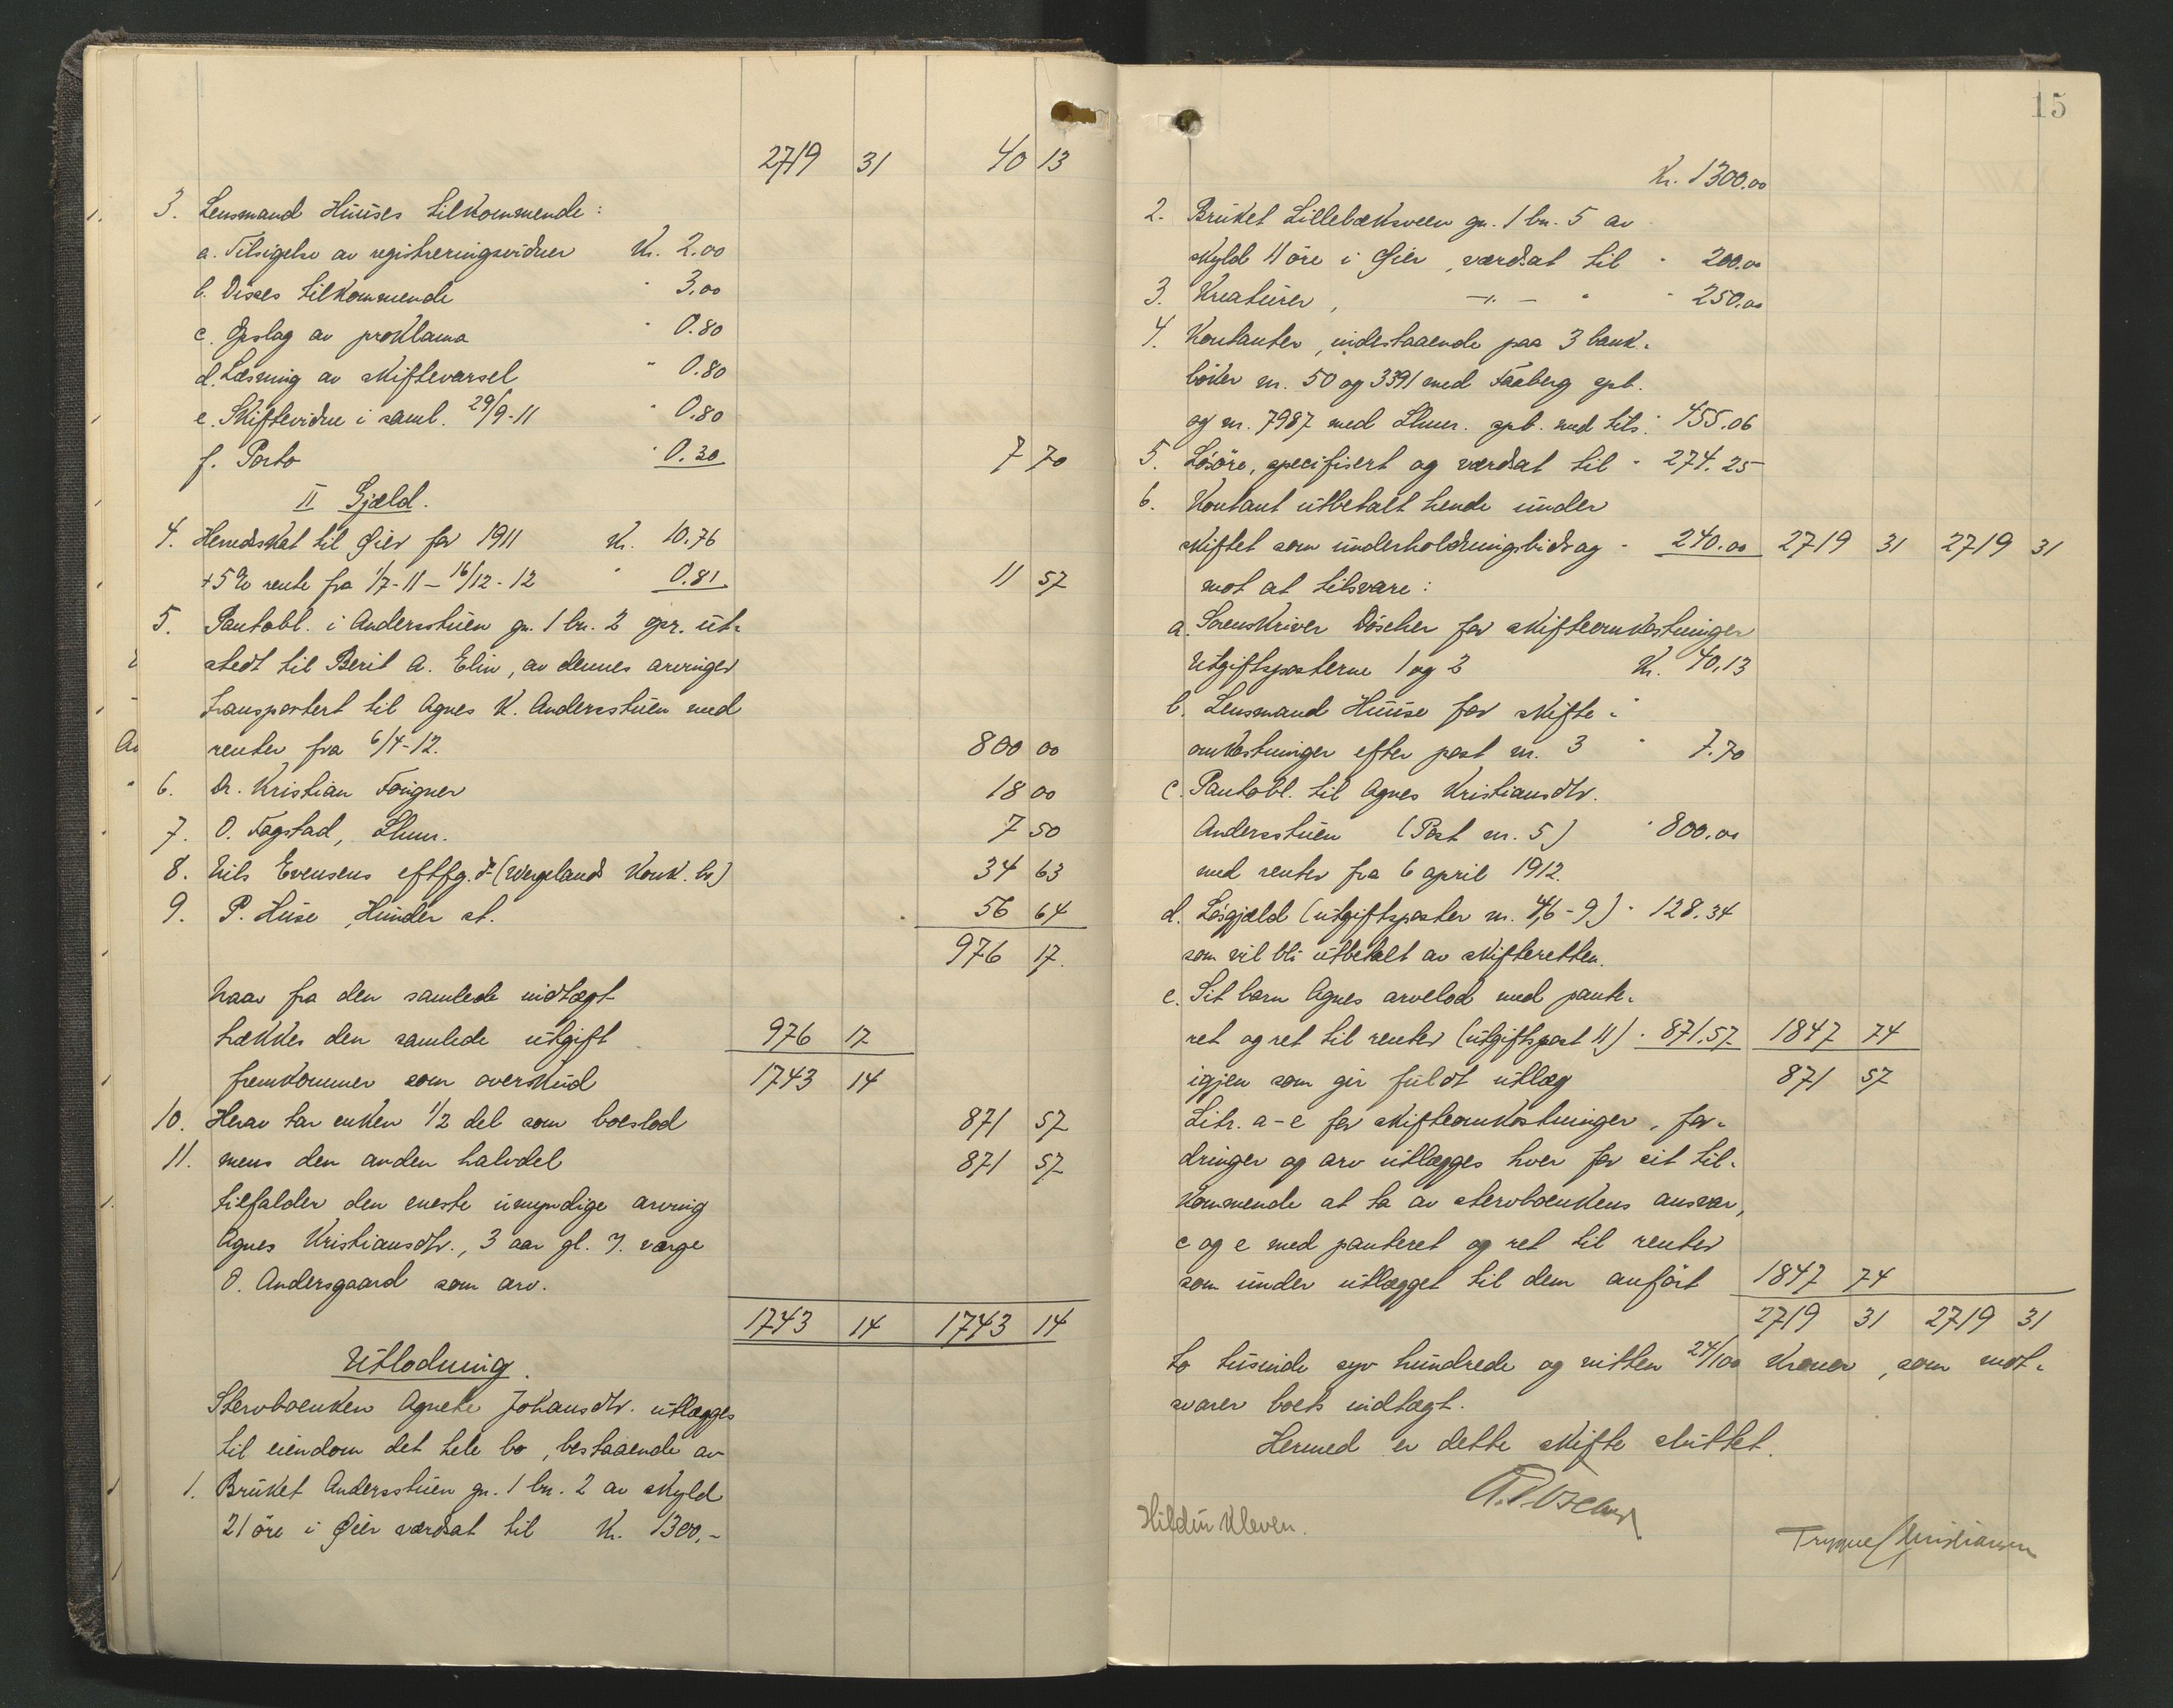 2719 31 40 13
3. Lensmand Huuses tilkommende:
a. Tilsigelse av registreringsvidner Kr. 2.00
b. Disses tilkommende " 3.00
c. Opslag av proklama " 0.80
d. Læsning av skiftevarsel " 0.80
e. Skiftevidne i saml. 29/9-11 " 0.80
f. Porto " 0.30 7 70
II Gjæld.
4. Herredskat til Øier for 1911 Kr. 10.76
+5% rente fra 1/7-11 – 16/12-12 " 0.81 11 57
5. Pantobl. i Andersstuen gn. 1 bn. 2 opr. ut-
stedt til Berit A. Elin, av dennes arvinger
transportert til Agnes K. Andersstuen med
renter fra 6/4-12. 800 00
6. Dr. Kristian Fougner 18 00
7. O. Fagstad, Lhmr. 7 50
8. Nils Evensens eftfg. (Wergelands Konk. bo) 34 63
9. P. Huse, Hunder st. 56 64
976 17.
Naar fra den samlede indtægt
trækkes den samlede utgift 976 17
fremkommer som overskud 1743 14
10. Herav tar enken 1/2 del som boeslod 871 57
11. mens den anden halvdel 871 57
tilfalder den eneste umyndige arving
Agnes Kristiansdtr., 3 aar gl. F. verge
O. Andersgaard som arv.
1743 14 1743 14
Utlodning.
Stervboenken Agnete Johansdtr. utlægges
til eiendom det hele bo, bestaaende av
1. Bruket Andersstuen gn. 1 bn. 2 av skyld
21 øre i Øier værdsat til Kr. 1300,-
15
Kr. 1300.00
2. Bruket Lillebæksveen gn. 1 bn. 5 av
skyld 11 øre i Øier, værdsat til " 200.00
3. Kreaturer, —"— " " 250.00
4. Kontanter, indestaaende paa 3 bank-
bøker nr. 50 og 3391 med Faaberg spb.
og nr. 7987 med Lhmr. spb. med tils. " 455.06
5. Løsøre, specifisert og værdsat til " 274.25
6. Kontant utbetalt hende under
skiftet som underholdningsbidrag " 240.00 2719 31 2719 31
mot at tilsvare:
a. Sorenskriver Döscher for skifteomkostninger
Utgiftsposterne 1 og 2 Kr. 40,13
b. Lensmand Huuse for skifte-
omkostninger efter post nr. 3 " 7.70
c. Pantobl. til Agnes Kristiansdtr.
Andersstuen (Post nr. 5) " 800.00
med renter fra 6 april 1912.
d. Løsgjæld (utgiftsposter nr. 4,6-9) " 128.34
som vil bli utbetalt av skifteretten.
e. Sit barn Agnes arvelod med pante-
ret og ret til renter (utgiftspost 11) " 871.57 1847 74
igjen som gir fuldt utlæg 871 57
Litr. a-e for skifteomkostninger, for-
dringer og arv utlægges hver for sit til-
kommende at ta av stervboenkens ansvar,
c og e med panteret og ret til renter
som under utlægget til dem anført 1847 74
2719 31 2719 31
to tusinde syv hundrede og nitten 24/100 kroner, som mot-
svarer boets indtægt.
Hermed er dette skifte sluttet.
Hildur Kleven.
Trygve Christiansen